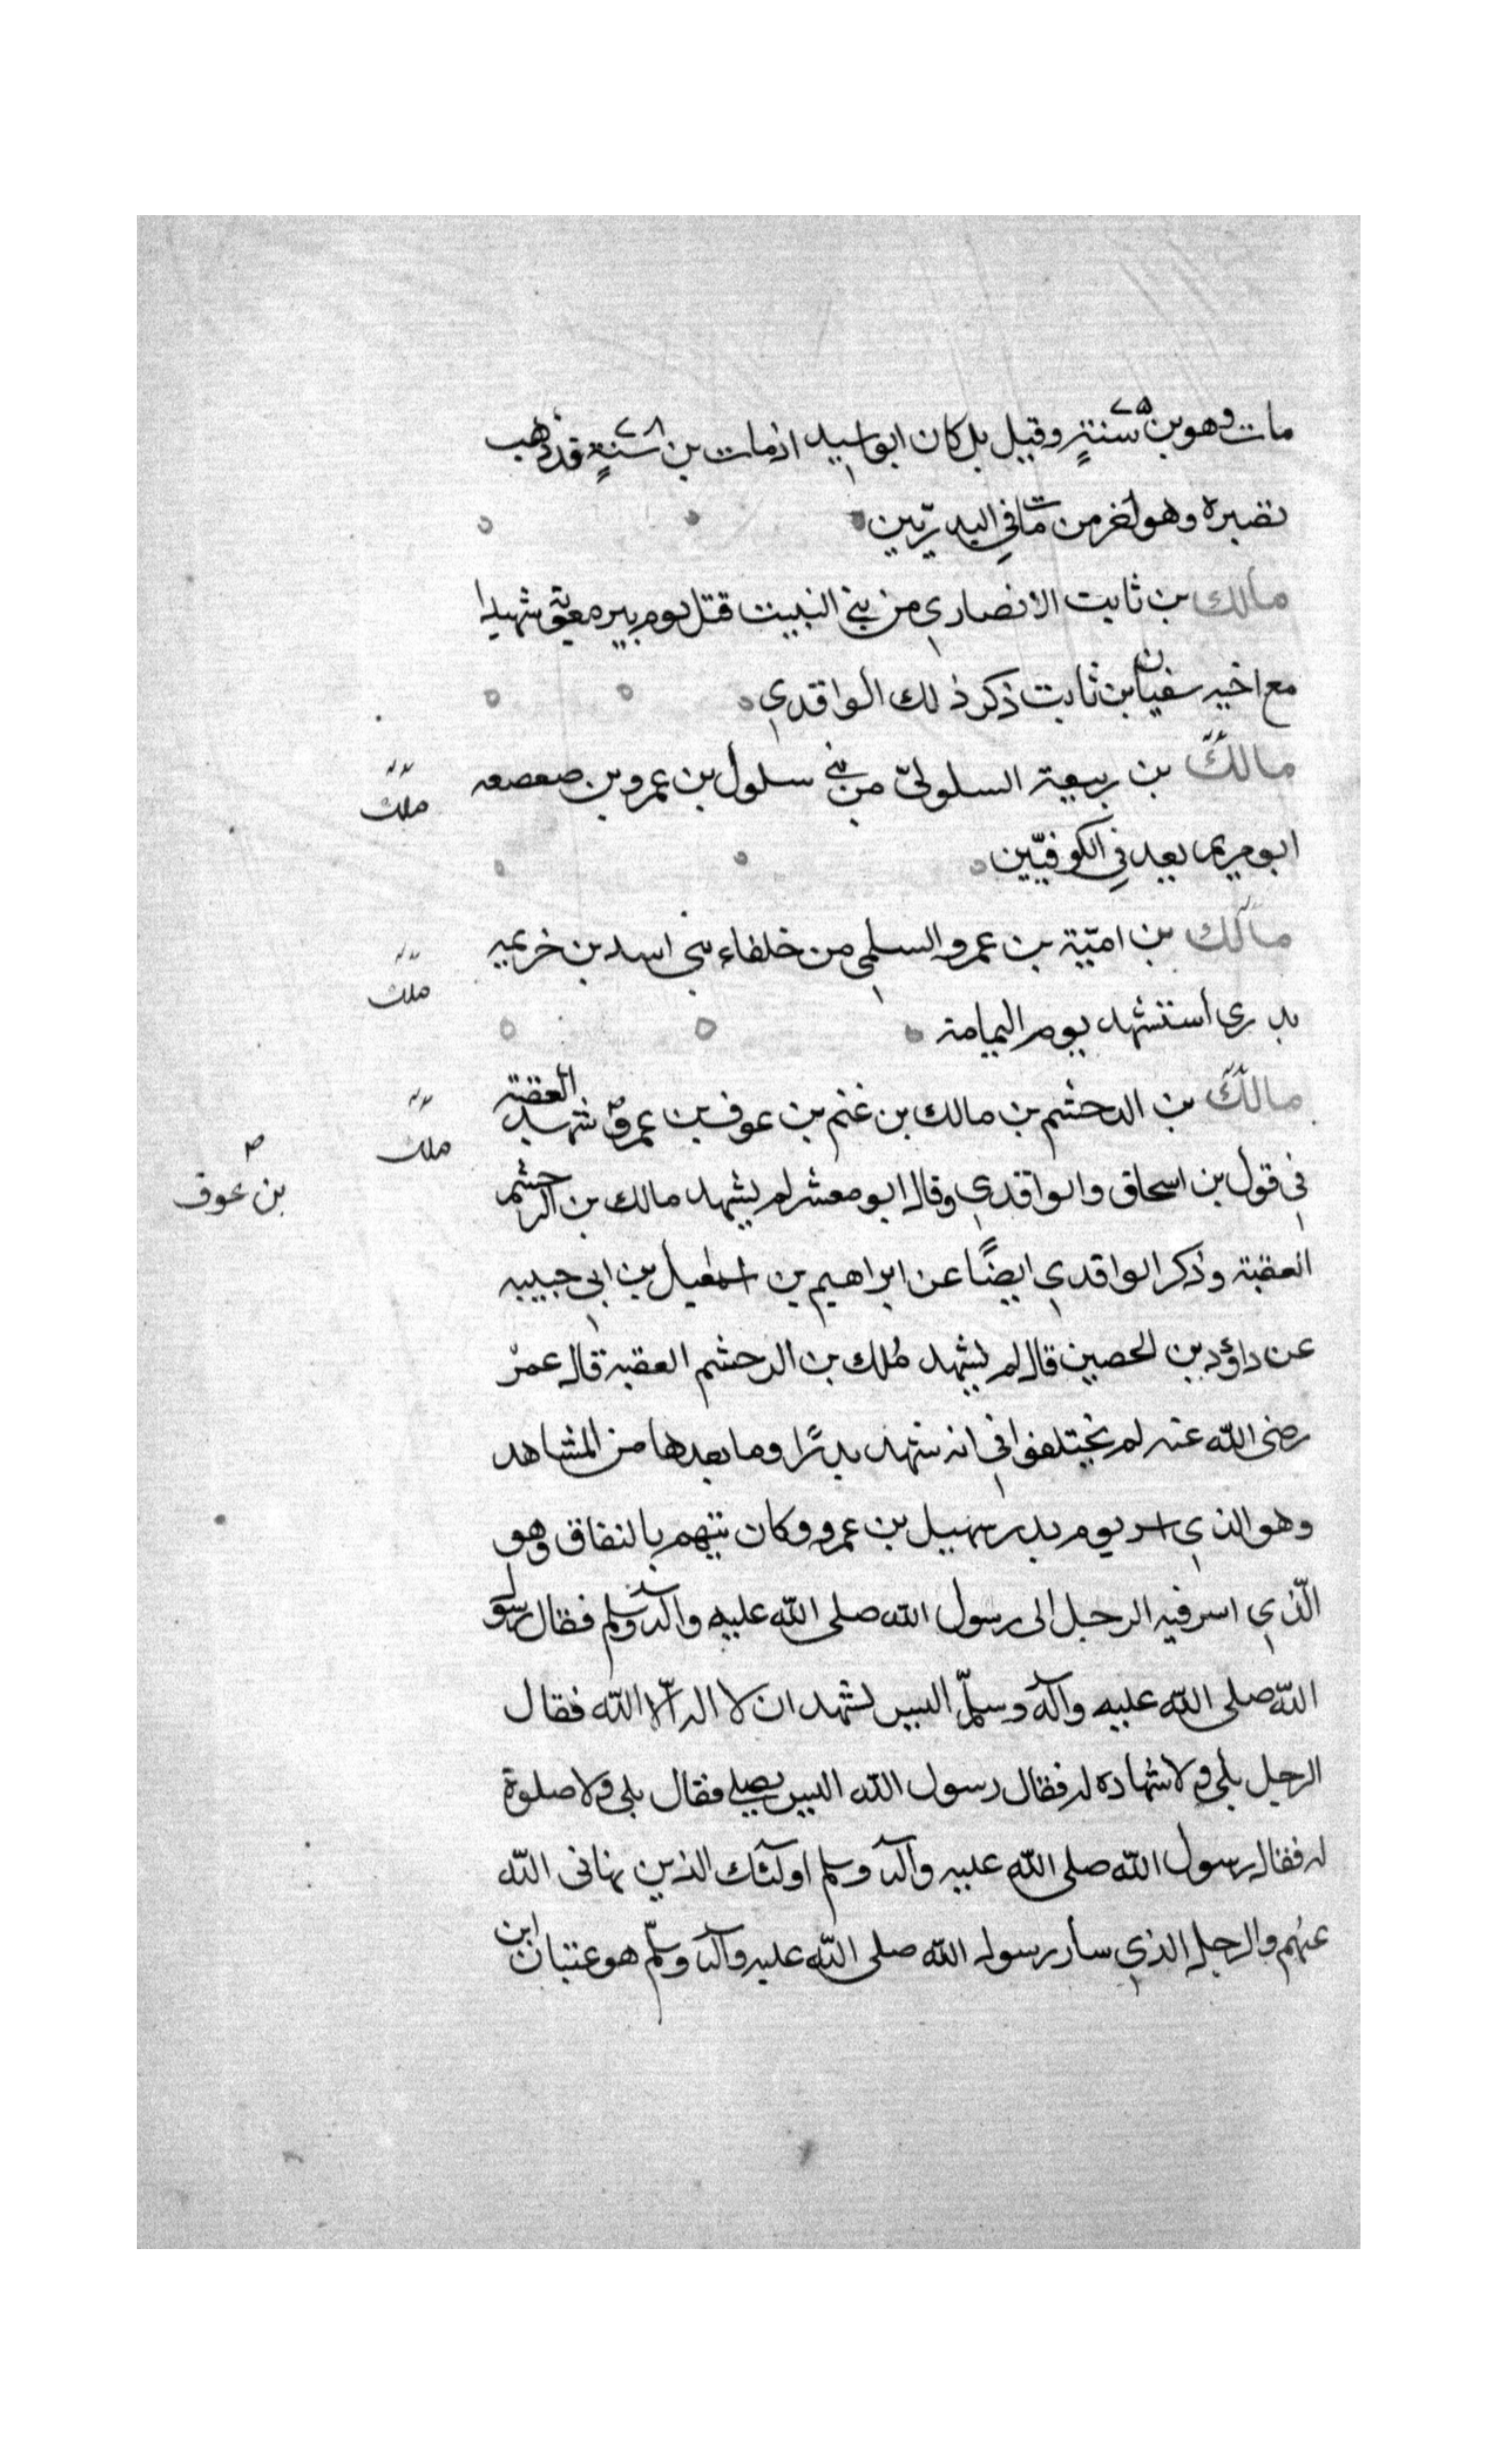 مات وهو بن ٧٥ سنةٍ وقيل بل كان ابو اسيد اذ مات بن ٧٨ سنةٍ قد ذهب
بصره وهو اخر من مات في البدريّين
مالك بن ثابت الانصاري من بني النبيت قتل يوم بير معونة شهيدا
مع اخيه سفيان بن ثابت ذكر ذلك الواقدي
مالك بن ربيعة السلوليّ من بني سلول بن عمرو بن صعصعه
ملك
ابو مريم يعد في الكوفيّين
مالك بن اميّة بن عمرو السلمي من خلفاء بني اسد بن خزيمه
ملك
بدري استشهد يوم اليمامة
مالك بن الدخشم بن مالك بن غنم بن عوف بن عمرو شهد العقبة
ملك
بن عوف
في قول بن اسحاق والواقدي وقال ابو معشر لم يشهد مالك بن الدخشم
العقبة وذكر الواقدي ايضًا عن ابراهيم بن اسمعيل بن ابي حبيبه
عن داؤد بن الحصين قال لم يشهد ملك بن الدخشم العقبه قال عمر
رضى الله عنه لم يختلفوا في انه شهد بدرًا وما بعدها من المشاهد
وهو الذي اسر يوم بدر سهيل بن عمرو وكان يتهم بالنفاق وهو
الّذي اسر فيه الرجل الى رسول الله صلى الله عليه وآله وسلم فقال رسول
الله صلى الله عليه وآله وسلّم اليس يشهد ان لا اله الّا الله فقال
الرجل بلى ولا شهادة له فقال رسول الله اليس يصلي فقال بلى ولا صلوة
له فقال رسول الله صلى الله عليه وآله وسلم اولئك الذين نهانى الله
عنهم والرجل الذي سار رسول الله صلى الله عليه وآله وسلّم هو عتبان ابن